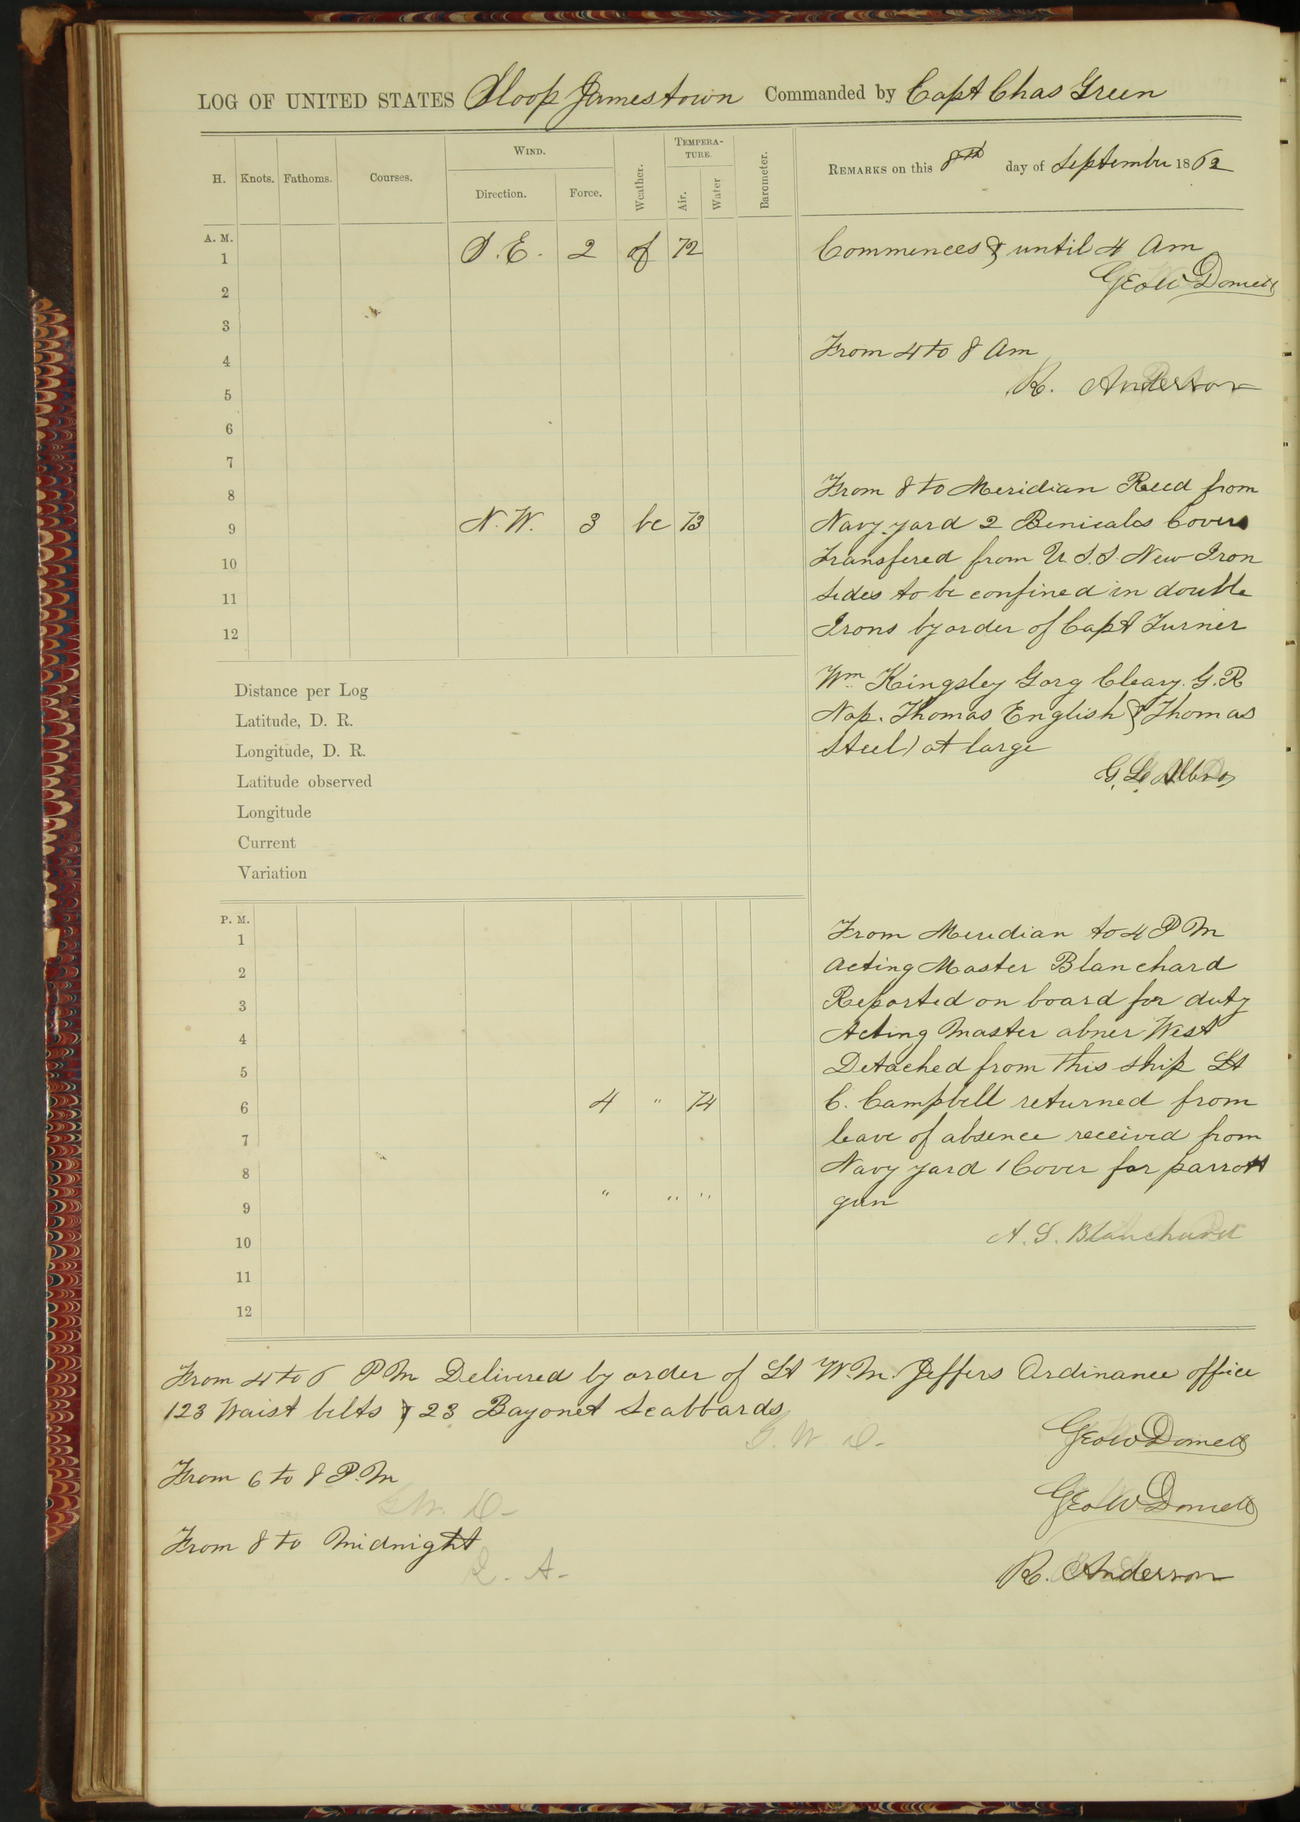 LOG OF UNITED STATES Sloop Jamestown Commanded by Capt Chas Green
H. Knots. Fathoms. Courses. WIND. Direction. Force. Weather. TEMPERATURE. Air. Water Barometer.
REMARKS on this 8th day of September 1862
A. M.
1 S.E. 2 of 72
2
3
4
5
6
7
8
9 N.W. 3 bc 73
10
11
12
Commences & until 4 Am
Geo W Domett
From 4 to 8 Am
R. Anderson
From 8 to Meridian Recd from
Navy yard 2 Covers
Transfered from U.S.S. New Iron
sides to be confined in double
Irons by order of Capt Turner
Wm Kingsley Gorg Cleary. G. R
Nap. Thomas English & Thomas
Steel) at large
Distance per Log
Latitude, D. R.
Longitude, D. R.
Latitude observed
Longitude
Current
Variation
P. M.
1
2
3
4
5
6 4 " 74
7
8
9 " " "
10
11
12
From Meridian to 4 P M
Acting Master Blanchard
Reported on board for duty
Acting Master abner West
Detached from this ship Lt
C. Campbell returned from
leave of absence received from
Navy yard 1 Cover for parrott
gun
A. S. Blanchard
From 4 to 6 P M Delivered by order of Lt W.M. Jeffers Ordinance office
123 Waist belts & 23 Bayonet Scabbards
G. W. D.
Geo W Domett
From 6 to 8 P.M
G W. D.
Geo W Domett
From 8 to Midnight
R. A.
R. Anderson